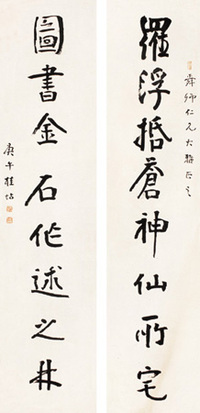 舜卿仁兄大雅正之
羅浮括蒼神仙所宅
圖書金石作述之林
庚午桂坫